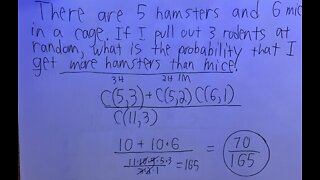 There are 5 hamsters and 6 mice
in a cage. If I pull out 3 rodents at
random, what is the probability that I
get more hamsters than mice.
3H 2H 1M
C(5,3)+C(5,2)C(6,1)
C(11,3)
10 + 10·6 = 70
11·10·9 = 165 165